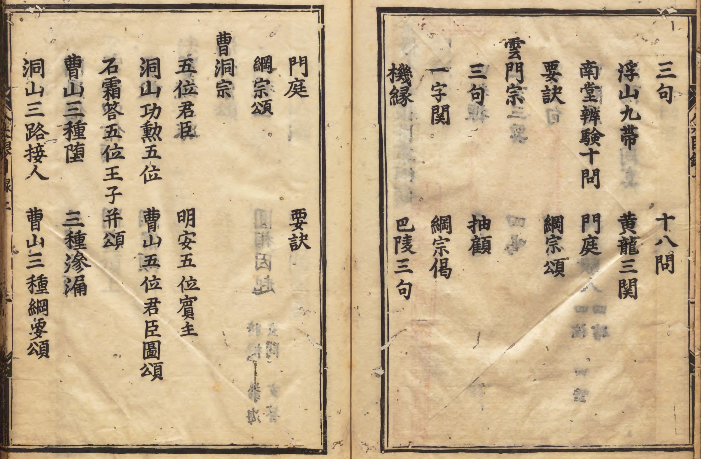 三句 十八問
浮山九帶 黄龍三関
南堂辨驗十問 門庭
要訣 綱宗頌
雲門宗
三句 抽顧
一字関 綱宗偈
機縁 巴陵三句
門庭 要訣
綱宗頌
曹洞宗
五位君臣 明安五位賓主
洞山功勲五位 曹山五位君臣圖頌
石霜答五位王子并頌
曹山三種墮 三種滲漏
洞山三路接人 曹山三種綱要頌